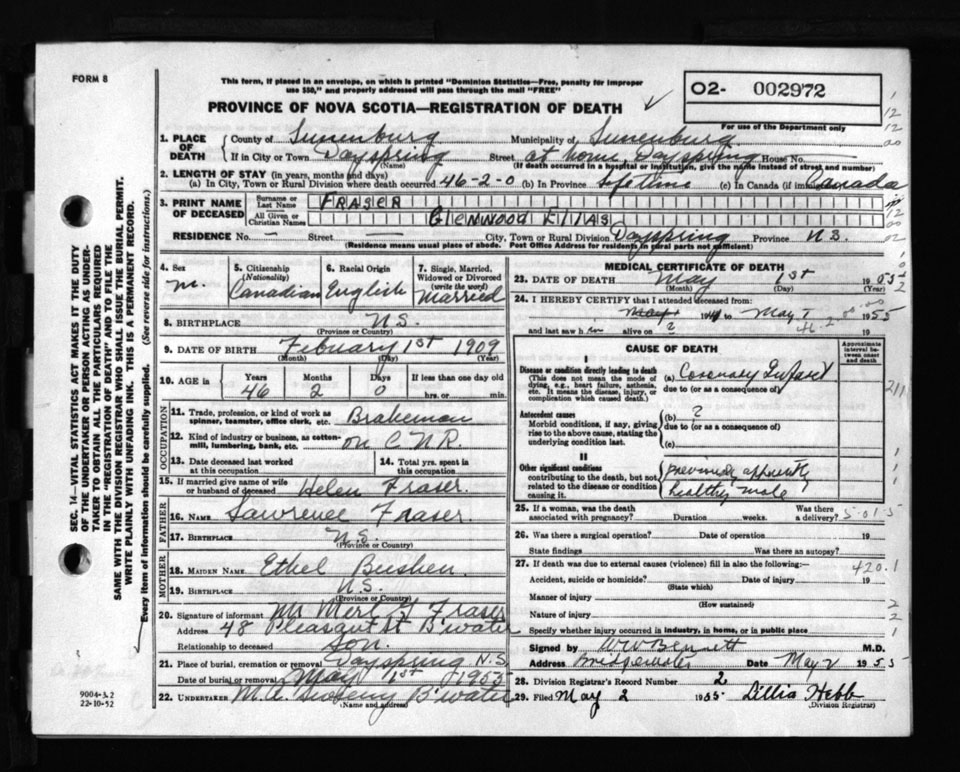 FORM 8
This form, if placed in an envelope, on which is printed "Dominion Statistics—Free, penalty for improper
use $50," and properly addressed will pass through the mail "FREE"
PROVINCE OF NOVA SCOTIA—REGISTRATION OF DEATH
02- 002972
For use of the Department only
1. PLACE OF DEATH
County of Lunenburg Municipality of Lunenburg
If in City or Town Dayspring Street at home, Dayspring House No.
(Name) (If death occurred in a hospital or institution, give the name instead of street and number)
2. LENGTH OF STAY (in years, months and days)
(a) In City, Town or Rural Division where death occurred 46-2-0 (b) In Province lifetime (c) In Canada (if immi Canada
3. PRINT NAME OF DECEASED
Surname or Last Name FRASER
All Given or Christian Names Glenwood Elias
RESIDENCE No. — Street City, Town or Rural Division Dayspring Province N.S.
(Residence means usual place of abode. Post Office Address for residents in rural parts not sufficient)
4. Sex
m.
5. Citizenship
(Nationality)
Canadian
6. Racial Origin
English
7. Single, Married,
Widowed or Divorced
(write the word)
Married
8. BIRTHPLACE N.S.
(Province or Country)
9. DATE OF BIRTH February 1st 1909
(Month) (Day) (Year)
10. AGE in Years Months Days If less than one day old
46 2 0 hrs. or min.
OCCUPATION
11. Trade, profession, or kind of work as
spinner, teamster, office clerk, etc. Brakeman
12. Kind of industry or business, as cotton-
mill, lumbering, bank, etc. on C.N.R.
13. Date deceased last worked
at this occupation
14. Total yrs. spent in
this occupation
15. If married give name of wife
or husband of deceased Helen Fraser.
FATHER
16. NAME Lawrence Fraser.
17. BIRTHPLACE N.S.
(Province or Country)
MOTHER
18. MAIDEN NAME Ethel
19. BIRTHPLACE N.S.
(Province or Country)
20. Signature of informant Mr Merl F Fraser
Address 48 Pleasant St B'water
Relationship to deceased Son.
21. Place of burial, cremation or removal Dayspring N.S.
Date of burial or removal May 1955
22. UNDERTAKER B'water
(Name and address)
MEDICAL CERTIFICATE OF DEATH
23. DATE OF DEATH May 1st 1955
(Month) (Day)
24. I HEREBY CERTIFY that I attended deceased from:
to May 1 1955
46-2-00
and last saw h im alive on ? 19
CAUSE OF DEATH
Approximate interval between onset and death
I
Disease or condition directly leading to death
(This does not mean the mode of
dying, e.g., heart failure, asthenia,
etc. It means the disease, injury, or
complication which caused death.)
(a) Coronary Infarct
due to (or as a consequence of)
Antecedent causes
Morbid conditions, if any, giving
rise to the above cause, stating the
underlying condition last.
(b) ?
due to (or as a consequence of)
(c)
II
Other significant conditions
contributing to the death, but not
related to the disease or condition
causing it.
previously apparently
healthy male
25. If a woman, was the death
associated with pregnancy? Duration weeks. Was there a delivery?
5-01-5
26. Was there a surgical operation? Date of operation 19
State findings Was there an autopsy?
27. If death was due to external causes (violence) fill in also the following:
420.1
Accident, suicide or homicide? Date of injury 19
(State which)
Manner of injury
(How sustained)
Nature of injury
Specify whether injury occurred in industry, in home, or in public place
Signed by W W Bennett M.D.
Address Bridgewater Date May 2 1955
28. Division Registrar's Record Number 2
29. Filed May 2 1955 Lillia Hebb
(Division Registrar)
SEC. 14—VITAL STATISTICS ACT MAKES IT THE DUTY
OF THE UNDERTAKER OR PERSON ACTING AS UNDER-
TAKER TO OBTAIN ALL THE PARTICULARS REQUIRED
IN THE "REGISTRATION OF DEATH" AND TO FILE THE
SAME WITH THE DIVISION REGISTRAR WHO SHALL ISSUE THE BURIAL PERMIT.
WRITE PLAINLY WITH UNFADING INK. THIS IS A PERMANENT RECORD.
Every item of information should be carefully supplied. (See reverse side for instructions.)
9004-3.2
22-10-52